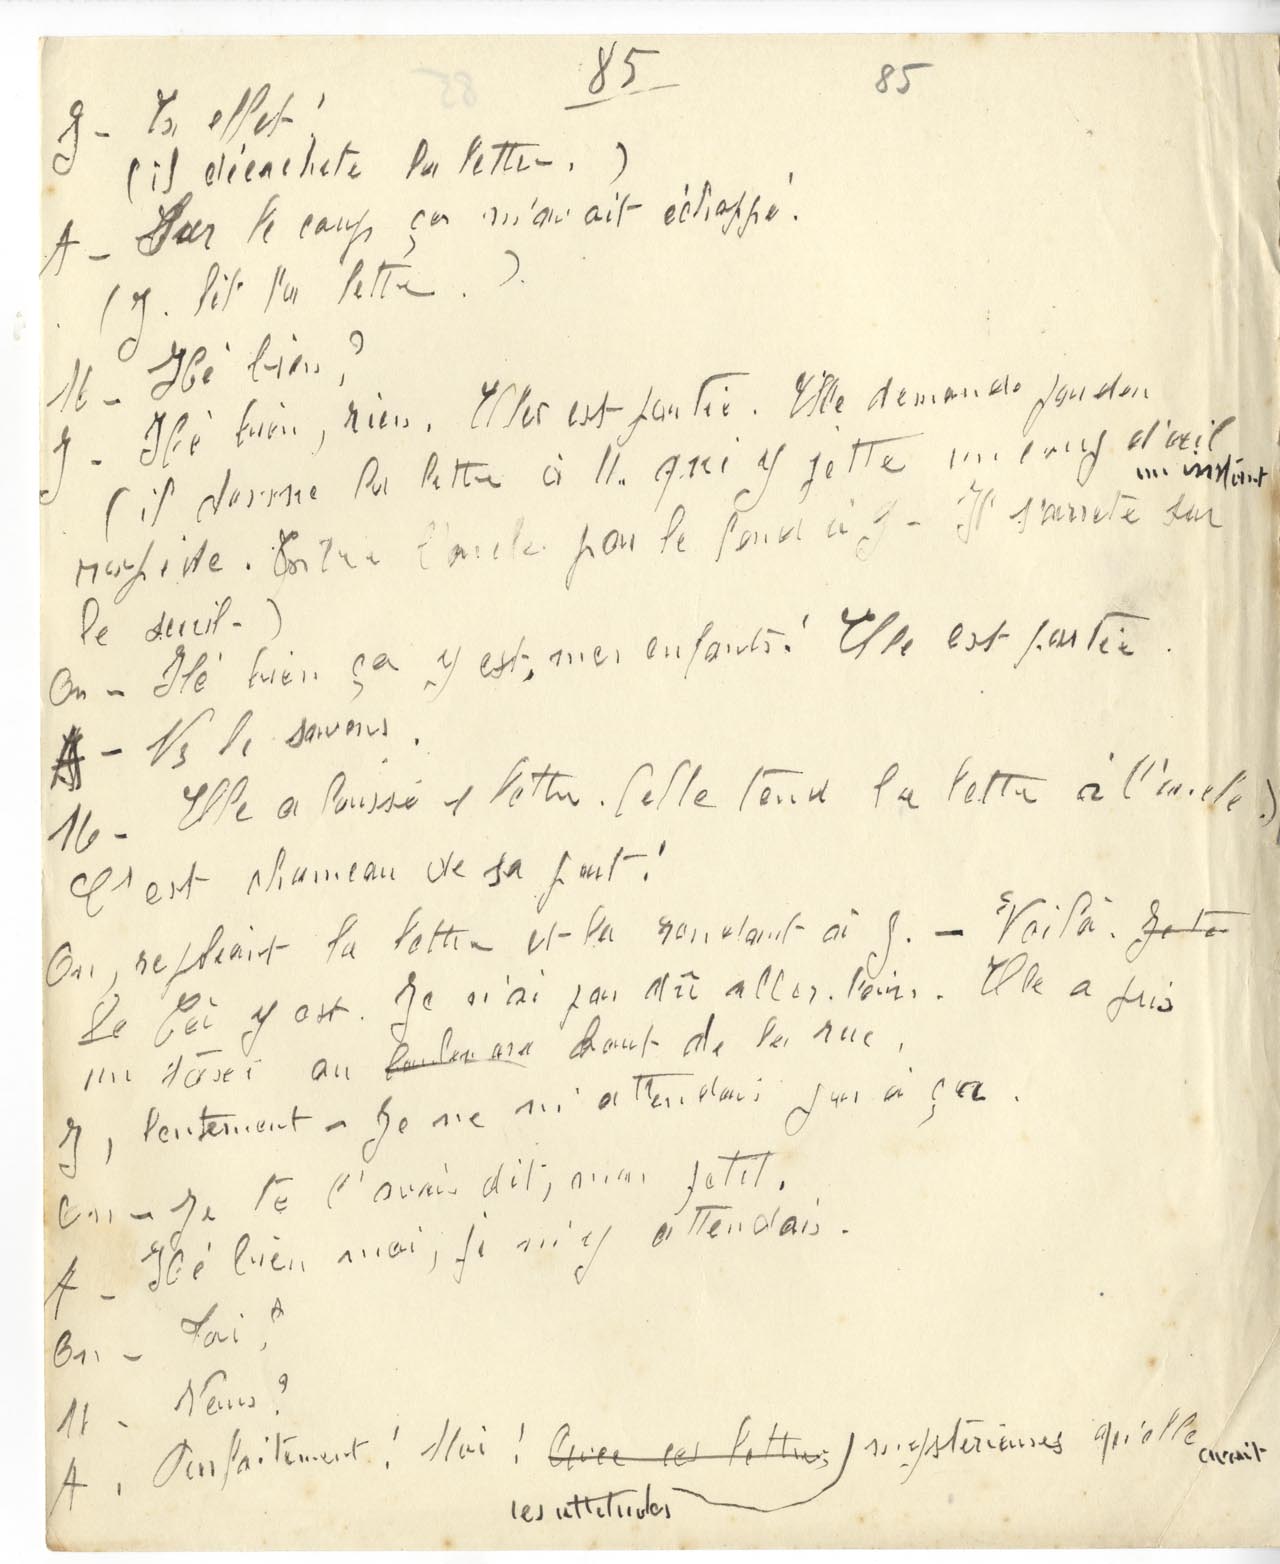 85 85
J - En effet!
(il décachete la lettre.)
A - Sur le coup ça m'avait échappé.
(J. lit la lettre.)
M - Hé bien?
J - Hé bien, rien. Elle est partie. Elle demande pardon
(il donne la lettre à M. qui y jette un coup d'œil
rapide. Entre l'oncle par le fond à g - Il s'arrete un instant sur
le seuil -)
On - Hé bien ça y est, mes enfants! Elle est partie.
A - Ns le savons.
M - Elle a laissé 1 lettre. (elle tend la lettre à l'oncle.)
C'est chameau de sa part!
On, repliant la lettre et la rendant à J. - Voilà. Je te
Ça y est. Je n'ai pas dû aller loin. Elle a pris
un taxi au boulevard haut de la rue.
J, lentement - Je ne m'attendais pas à ça.
On - Je te l'avais dit, mon petit.
A - Hé bien moi, je m'y attendais.
On - Toi?
M - Vous?
A. Parfaitement! Moi! Avec ces lettres mystérieuses qu'elle avait
ces attitudes